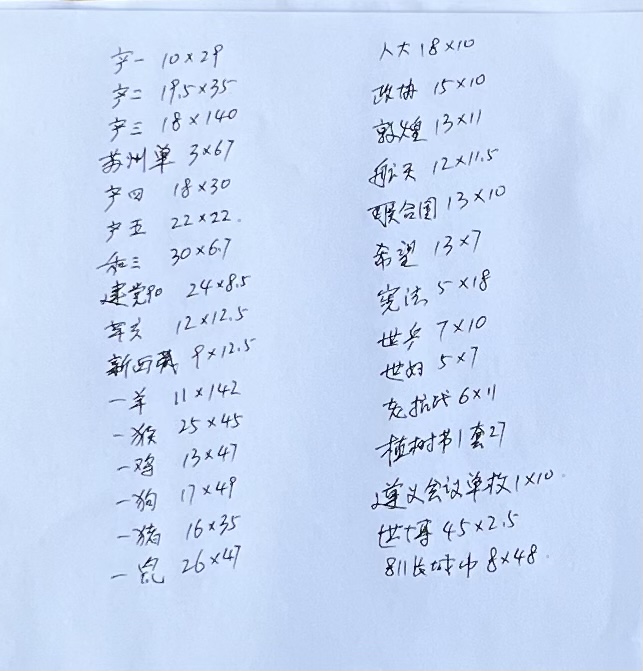 产一 10×29
产二 19.5×35
产三 18×140
苏州单 3×67
产四 18×30
产五 22×22.
和三 30×6.7
建党90 24×8.5
辛亥 12×12.5
新西藏 9×12.5
一羊 11×142
一猴 25×45
一鸡 13×47
一狗 17×49
一猪 16×35
一鼠 26×47
人大 18×10
政协 15×10
敦煌 13×11
航天 12×11.5
联合国 13×10
希望 13×7
宪法 5×18
世乒 7×10
世妇 5×7
老抗战 6×11
植树节1套27
遵义会议单枚1×10.
世博 45×2.5
811长城币 8×48.